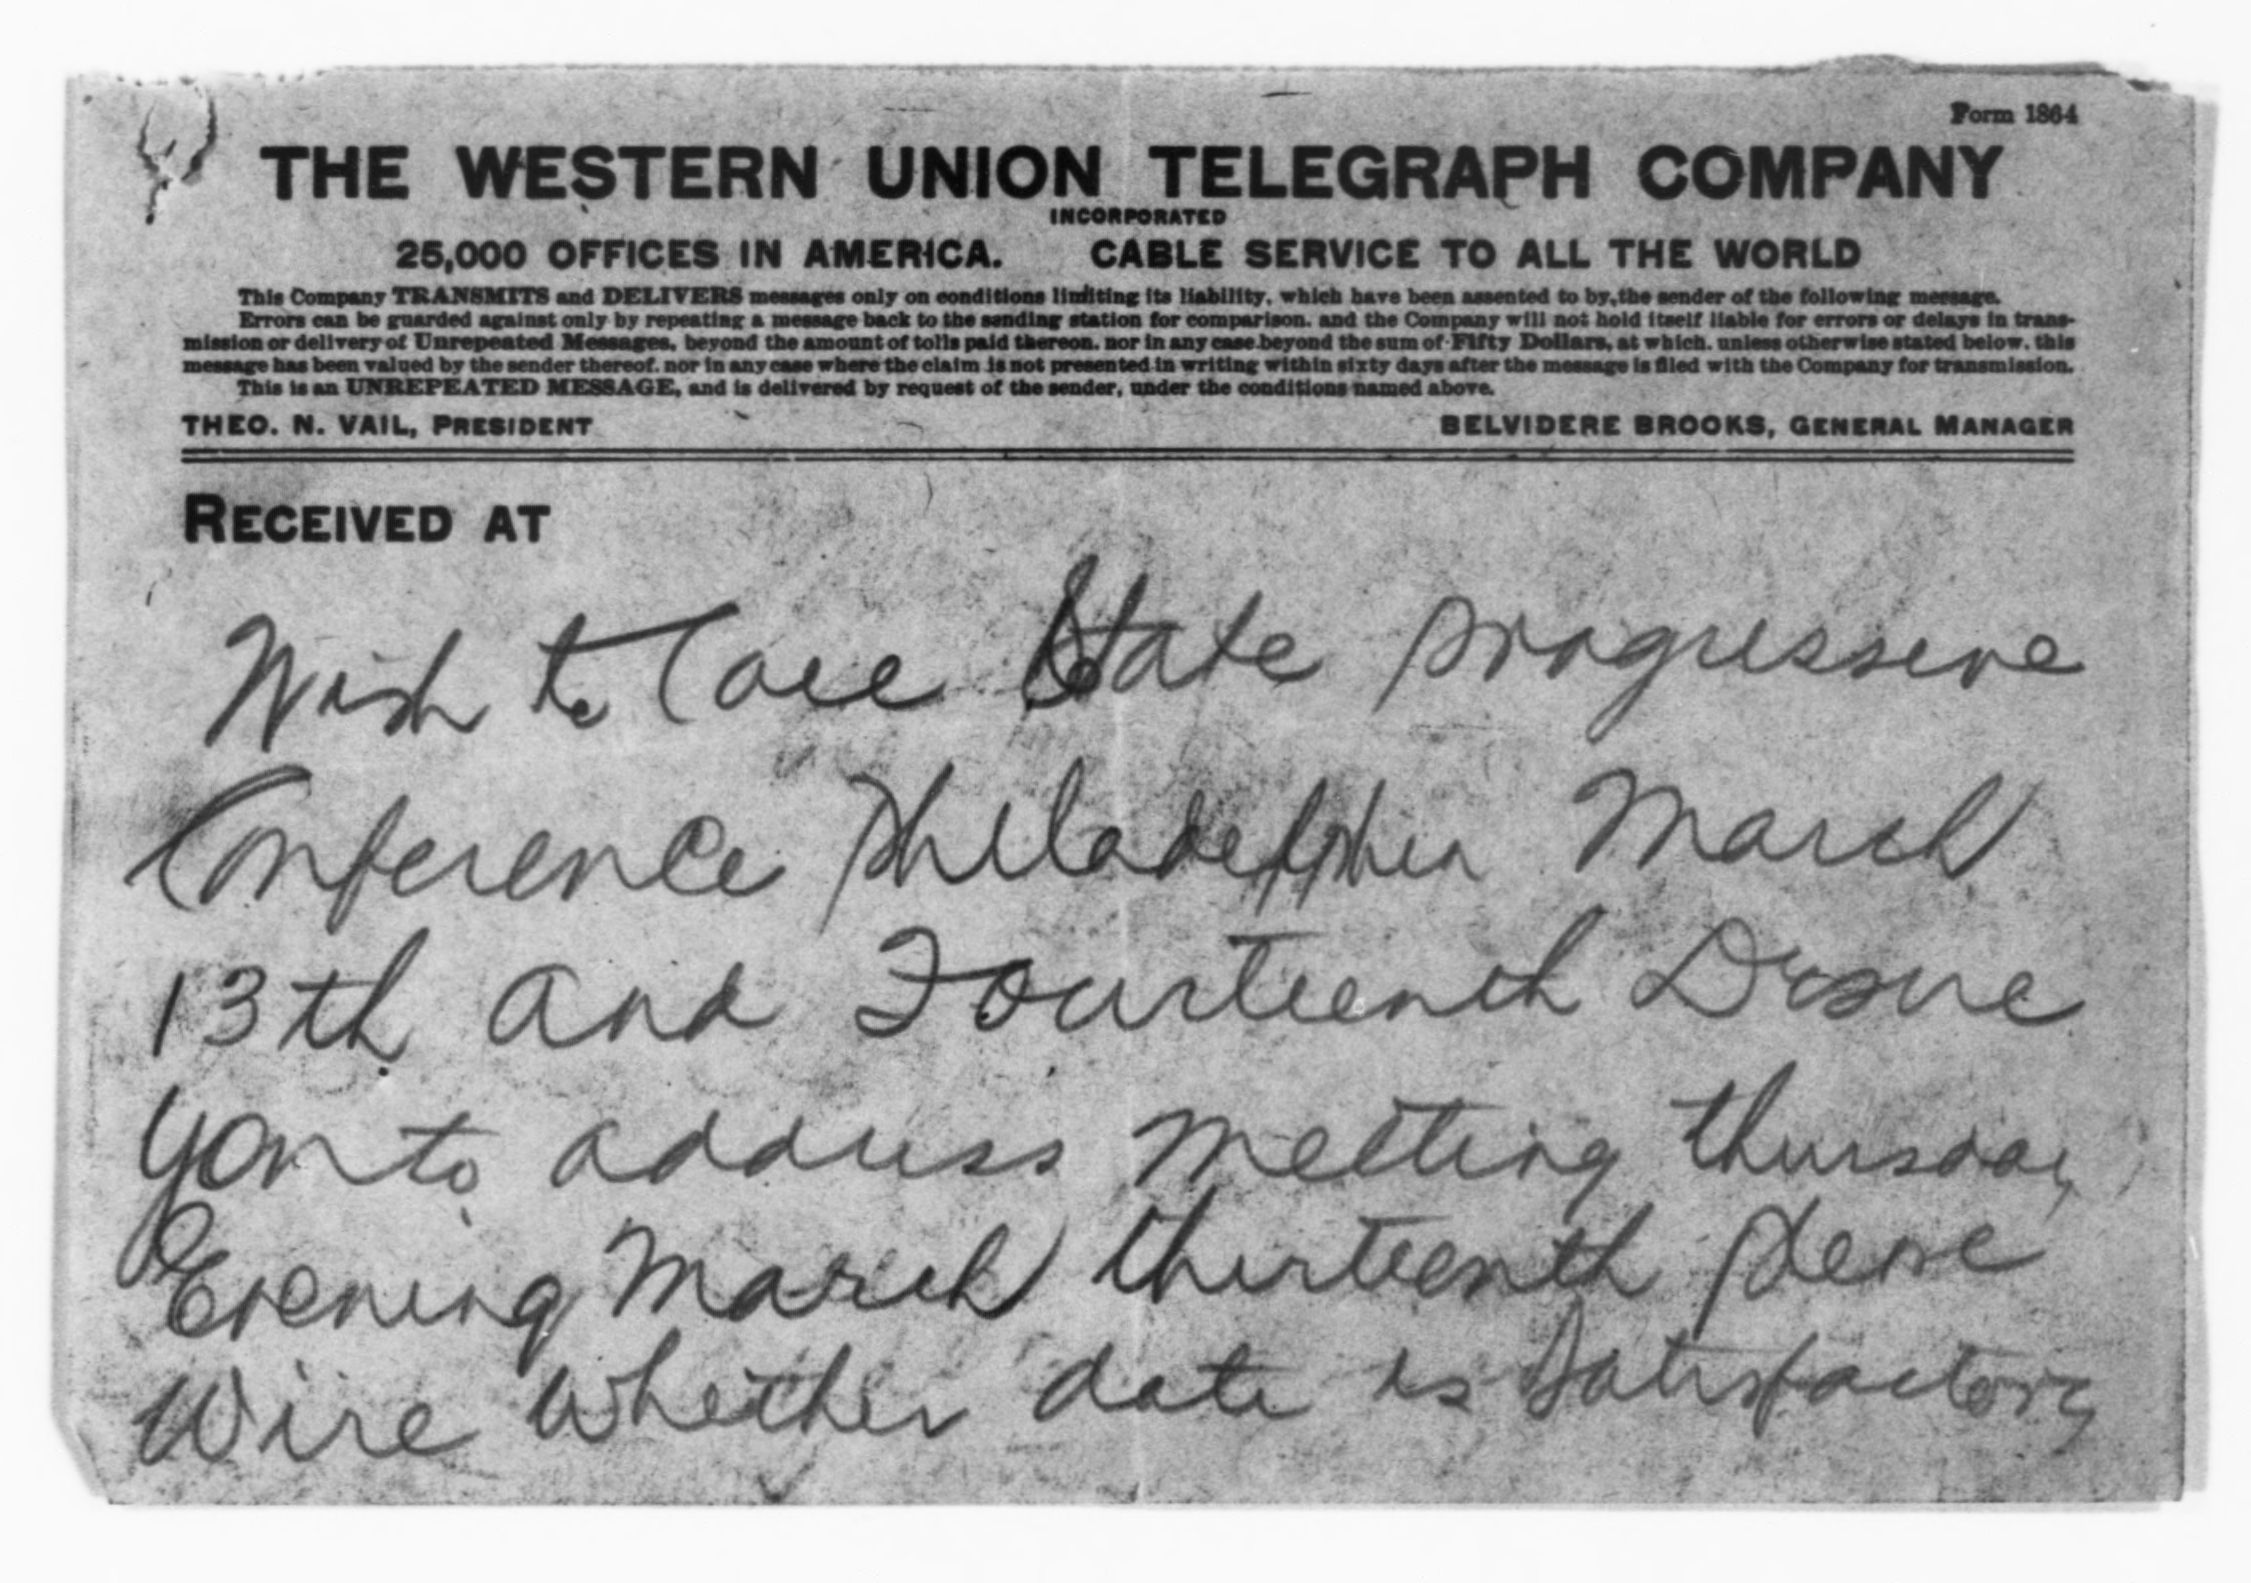 Form 1864
THE WESTERN UNION TELEGRAPH COMPANY
INCORPORATED
25,000 OFFICES IN AMERICA. CABLE SERVICE TO ALL THE WORLD
This Company TRANSMITS and DELIVERS messages only on conditions limiting its liability, which have been assented to by the sender of the following message.
Errors can be guarded against only by repeating a message back to the sending station for comparison, and the Company will not hold itself liable for errors or delays in trans-
mission or delivery of Unrepeated Messages, beyond the amount of tolls paid thereon, nor in any case beyond the sum of Fifty Dollars, at which, unless otherwise stated below, this
message has been valued by the sender thereof, nor in any case where the claim is not presented in writing within sixty days after the message is filed with the Company for transmission.
This is an UNREPEATED MESSAGE, and is delivered by request of the sender, under the conditions named above.
THEO. N. VAIL, PRESIDENT BELVIDERE BROOKS, GENERAL MANAGER
RECEIVED AT
Wish to Call State progressive
Conference Philadelphia March
13th and Fourteenth Desire
you to address meeting thursday
Evening March thirteenth please
Wire whether date is Satisfactory